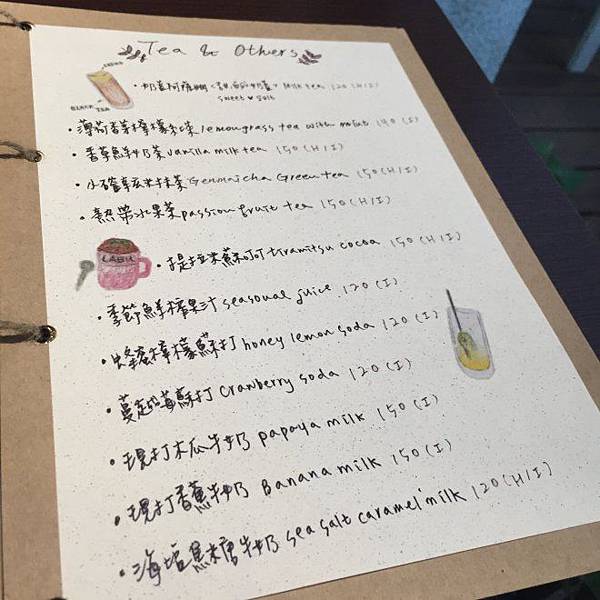 Tea & Others
CREAM
BLACK TEA
• 奶蓋 milk tea 120 (H/I)
sweet ♥ salt
• 薄荷香茅檸檬 lemongrass tea with mint 140 (I)
• 香草鮮奶茶 vanilla milk tea 150 (H/I)
• 玄米抹茶 Genmaicha Green tea 150 (H/I)
• 熱帶水果茶 passion fruit tea 150 (H/I)
LABU
• 提拉米蘇可可 tiramitsu cocoa 150 (H/I)
• 季節鮮榨果汁 seasonal juice 120 (I)
• 蜂蜜檸檬蘇打 honey lemon soda 120 (I)
• 蔓越莓蘇打 Cranberry soda 120 (I)
• 現打木瓜牛奶 papaya milk 150 (I)
• 現打香蕉牛奶 Banana milk 150 (I)
• 海塩焦糖牛奶 sea salt caramel milk 120 (H/I)